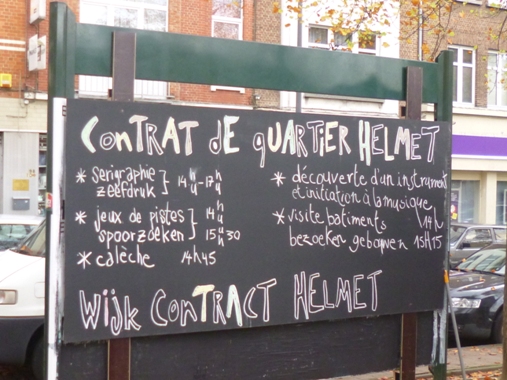 ConTRAT dE qUARTIER HELMET
* serigraphie
zeefdruk } 14u-17h
* jeux de pistes } 14h
spoorzoeken } 15u30
* calèche 14h45
* découverte d'un instrument
et initiation à la musique
* visite batiments 14h
bezoeken gebouwen 15H15
Wijk ConTRACT HELMET